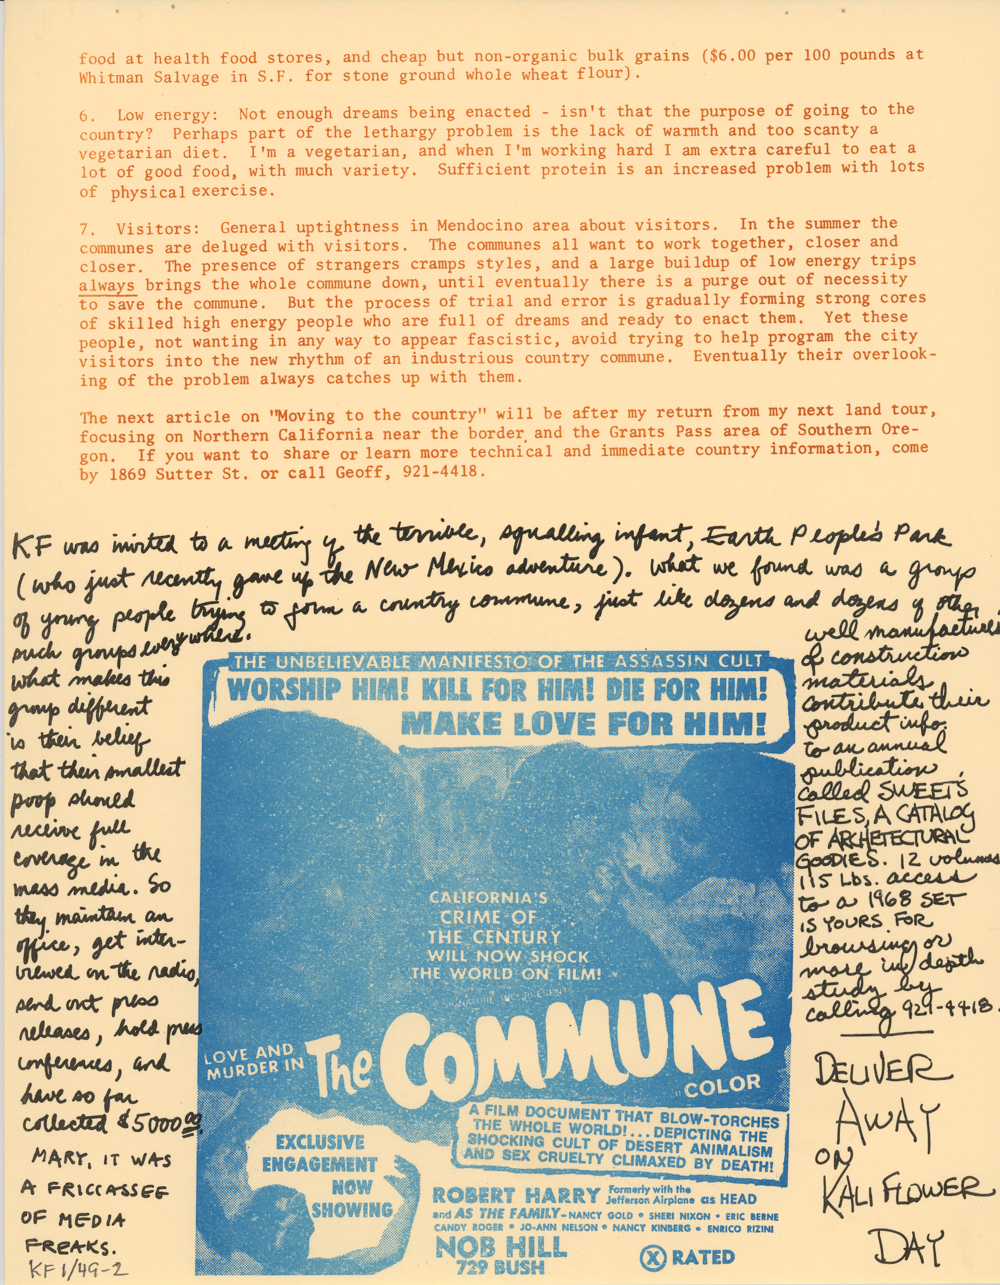 food at health food stores, and cheap but non-organic bulk grains ($6.00 per 100 pounds at
Whitman Salvage in S.F. for stone ground whole wheat flour).
6. Low energy: Not enough dreams being enacted - isn't that the purpose of going to the
country? Perhaps part of the lethargy problem is the lack of warmth and too scanty a
vegetarian diet. I'm a vegetarian, and when I'm working hard I am extra careful to eat a
lot of good food, with much variety. Sufficient protein is an increased problem with lots
of physical exercise.
7. Visitors: General uptightness in Mendocino area about visitors. In the summer the
communes are deluged with visitors. The communes all want to work together, closer and
closer. The presence of strangers cramps styles, and a large buildup of low energy trips
always brings the whole commune down, until eventually there is a purge out of necessity
to save the commune. But the process of trial and error is gradually forming strong cores
of skilled high energy people who are full of dreams and ready to enact them. Yet these
people, not wanting in any way to appear fascistic, avoid trying to help program the city
visitors into the new rhythm of an industrious country commune. Eventually their overlook-
ing of the problem always catches up with them.
The next article on "Moving to the country" will be after my return from my next land tour,
focusing on Northern California near the border and the Grants Pass area of Southern Ore-
gon. If you want to share or learn more technical and immediate country information, come
by 1869 Sutter St. or call Geoff, 921-4418.
KF was invited to a meeting of the terrible, squalling infant, Earth People's Park
(who just recently gave up the New Mexico adventure). What we found was a group
of young people trying to form a country commune, just like dozens and dozens of other
such groups everywhere.
what makes this
group different
is their belief
that their smallest
poop should
receive full
coverage in the
mass media. So
they maintain an
office, get inter-
viewed on the radio,
send out press
releases, hold press
conferences, and
have so far
collected $5000.00.
MARY, IT WAS
A FRICCASSEE
OF MEDIA
FREAKS.
KF 1/49-2
THE UNBELIEVABLE MANIFESTO OF THE ASSASSIN CULT
WORSHIP HIM! KILL FOR HIM! DIE FOR HIM!
MAKE LOVE FOR HIM!
CALIFORNIA'S
CRIME OF
THE CENTURY
WILL NOW SHOCK
THE WORLD ON FILM!
LOVE AND
MURDER IN
The COMMUNE
COLOR
A FILM DOCUMENT THAT BLOW-TORCHES
THE WHOLE WORLD!...DEPICTING THE
SHOCKING CULT OF DESERT ANIMALISM
AND SEX CRUELTY CLIMAXED BY DEATH!
EXCLUSIVE
ENGAGEMENT
NOW
SHOWING
ROBERT HARRY Formerly with the Jefferson Airplane as HEAD
and AS THE FAMILY-NANCY GOLD • SHERI NIXON • ERIC BERNE
CANDY ROGER • JO-ANN NELSON • NANCY KINBERG • ENRICO RIZINI
NOB HILL
729 BUSH
X RATED
well manufactures
of construction
materials
contribute their
product info.
to an annual
publication,
called SWEETS
FILES, A CATALOG
OF ARCHETECTURAL
GOODIES. 12 volumes
115 LBS. access
to a 1968 SET
IS YOURS FOR
browsing or
more in depth
study by
calling 921-4418.
DELIVER
AWAY
ON
KALIFLOWER
DAY